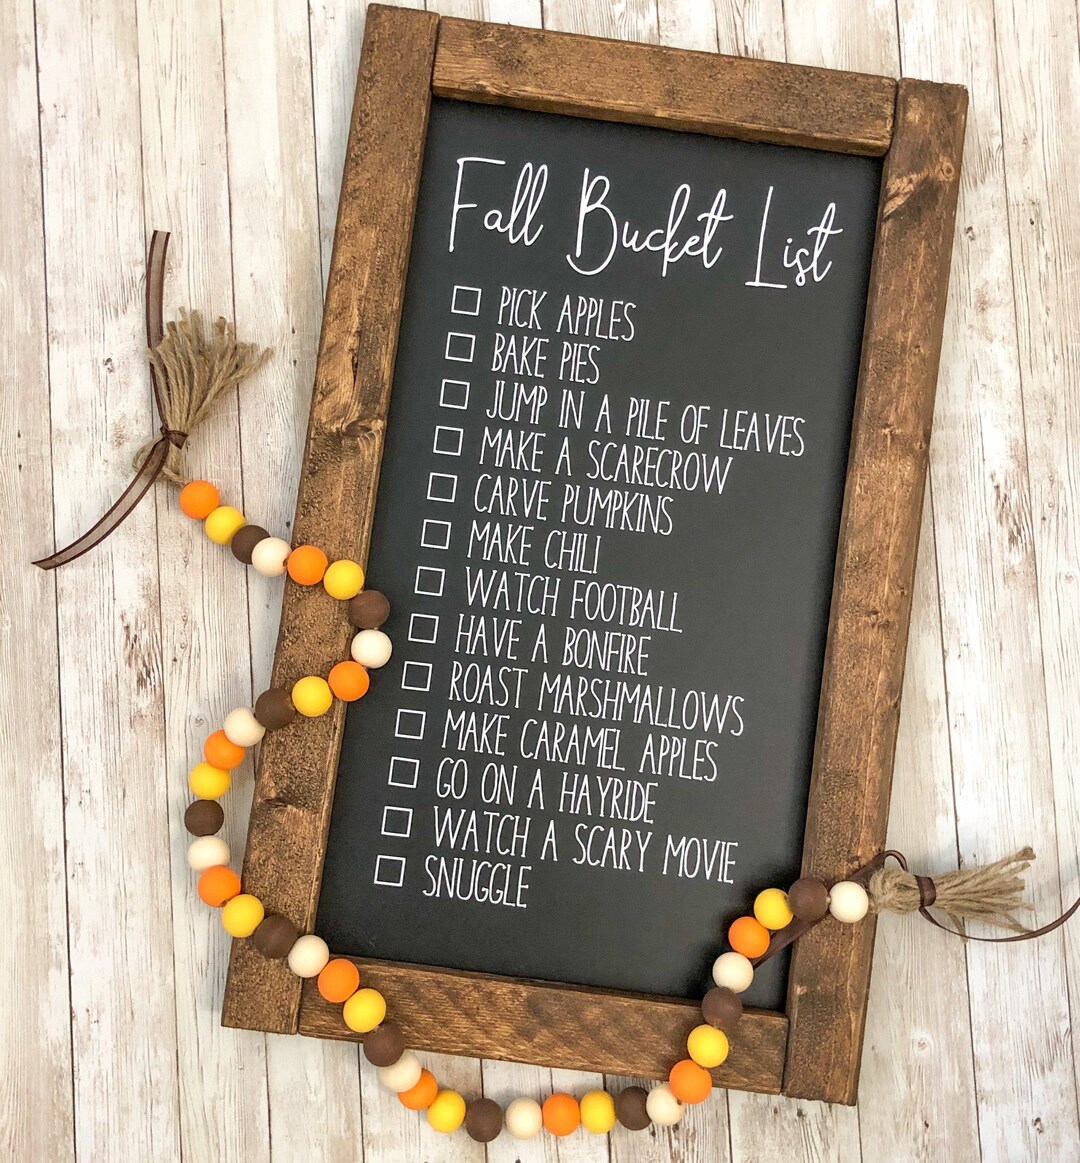 Fall Bucket List
☐ PICK APPLES
☐ BAKE PIES
☐ JUMP IN A PILE OF LEAVES
☐ MAKE A SCARECROW
☐ CARVE PUMPKINS
☐ MAKE CHILI
☐ WATCH FOOTBALL
☐ HAVE A BONFIRE
☐ ROAST MARSHMALLOWS
☐ MAKE CARAMEL APPLES
☐ GO ON A HAYRIDE
☐ WATCH A SCARY MOVIE
☐ SNUGGLE